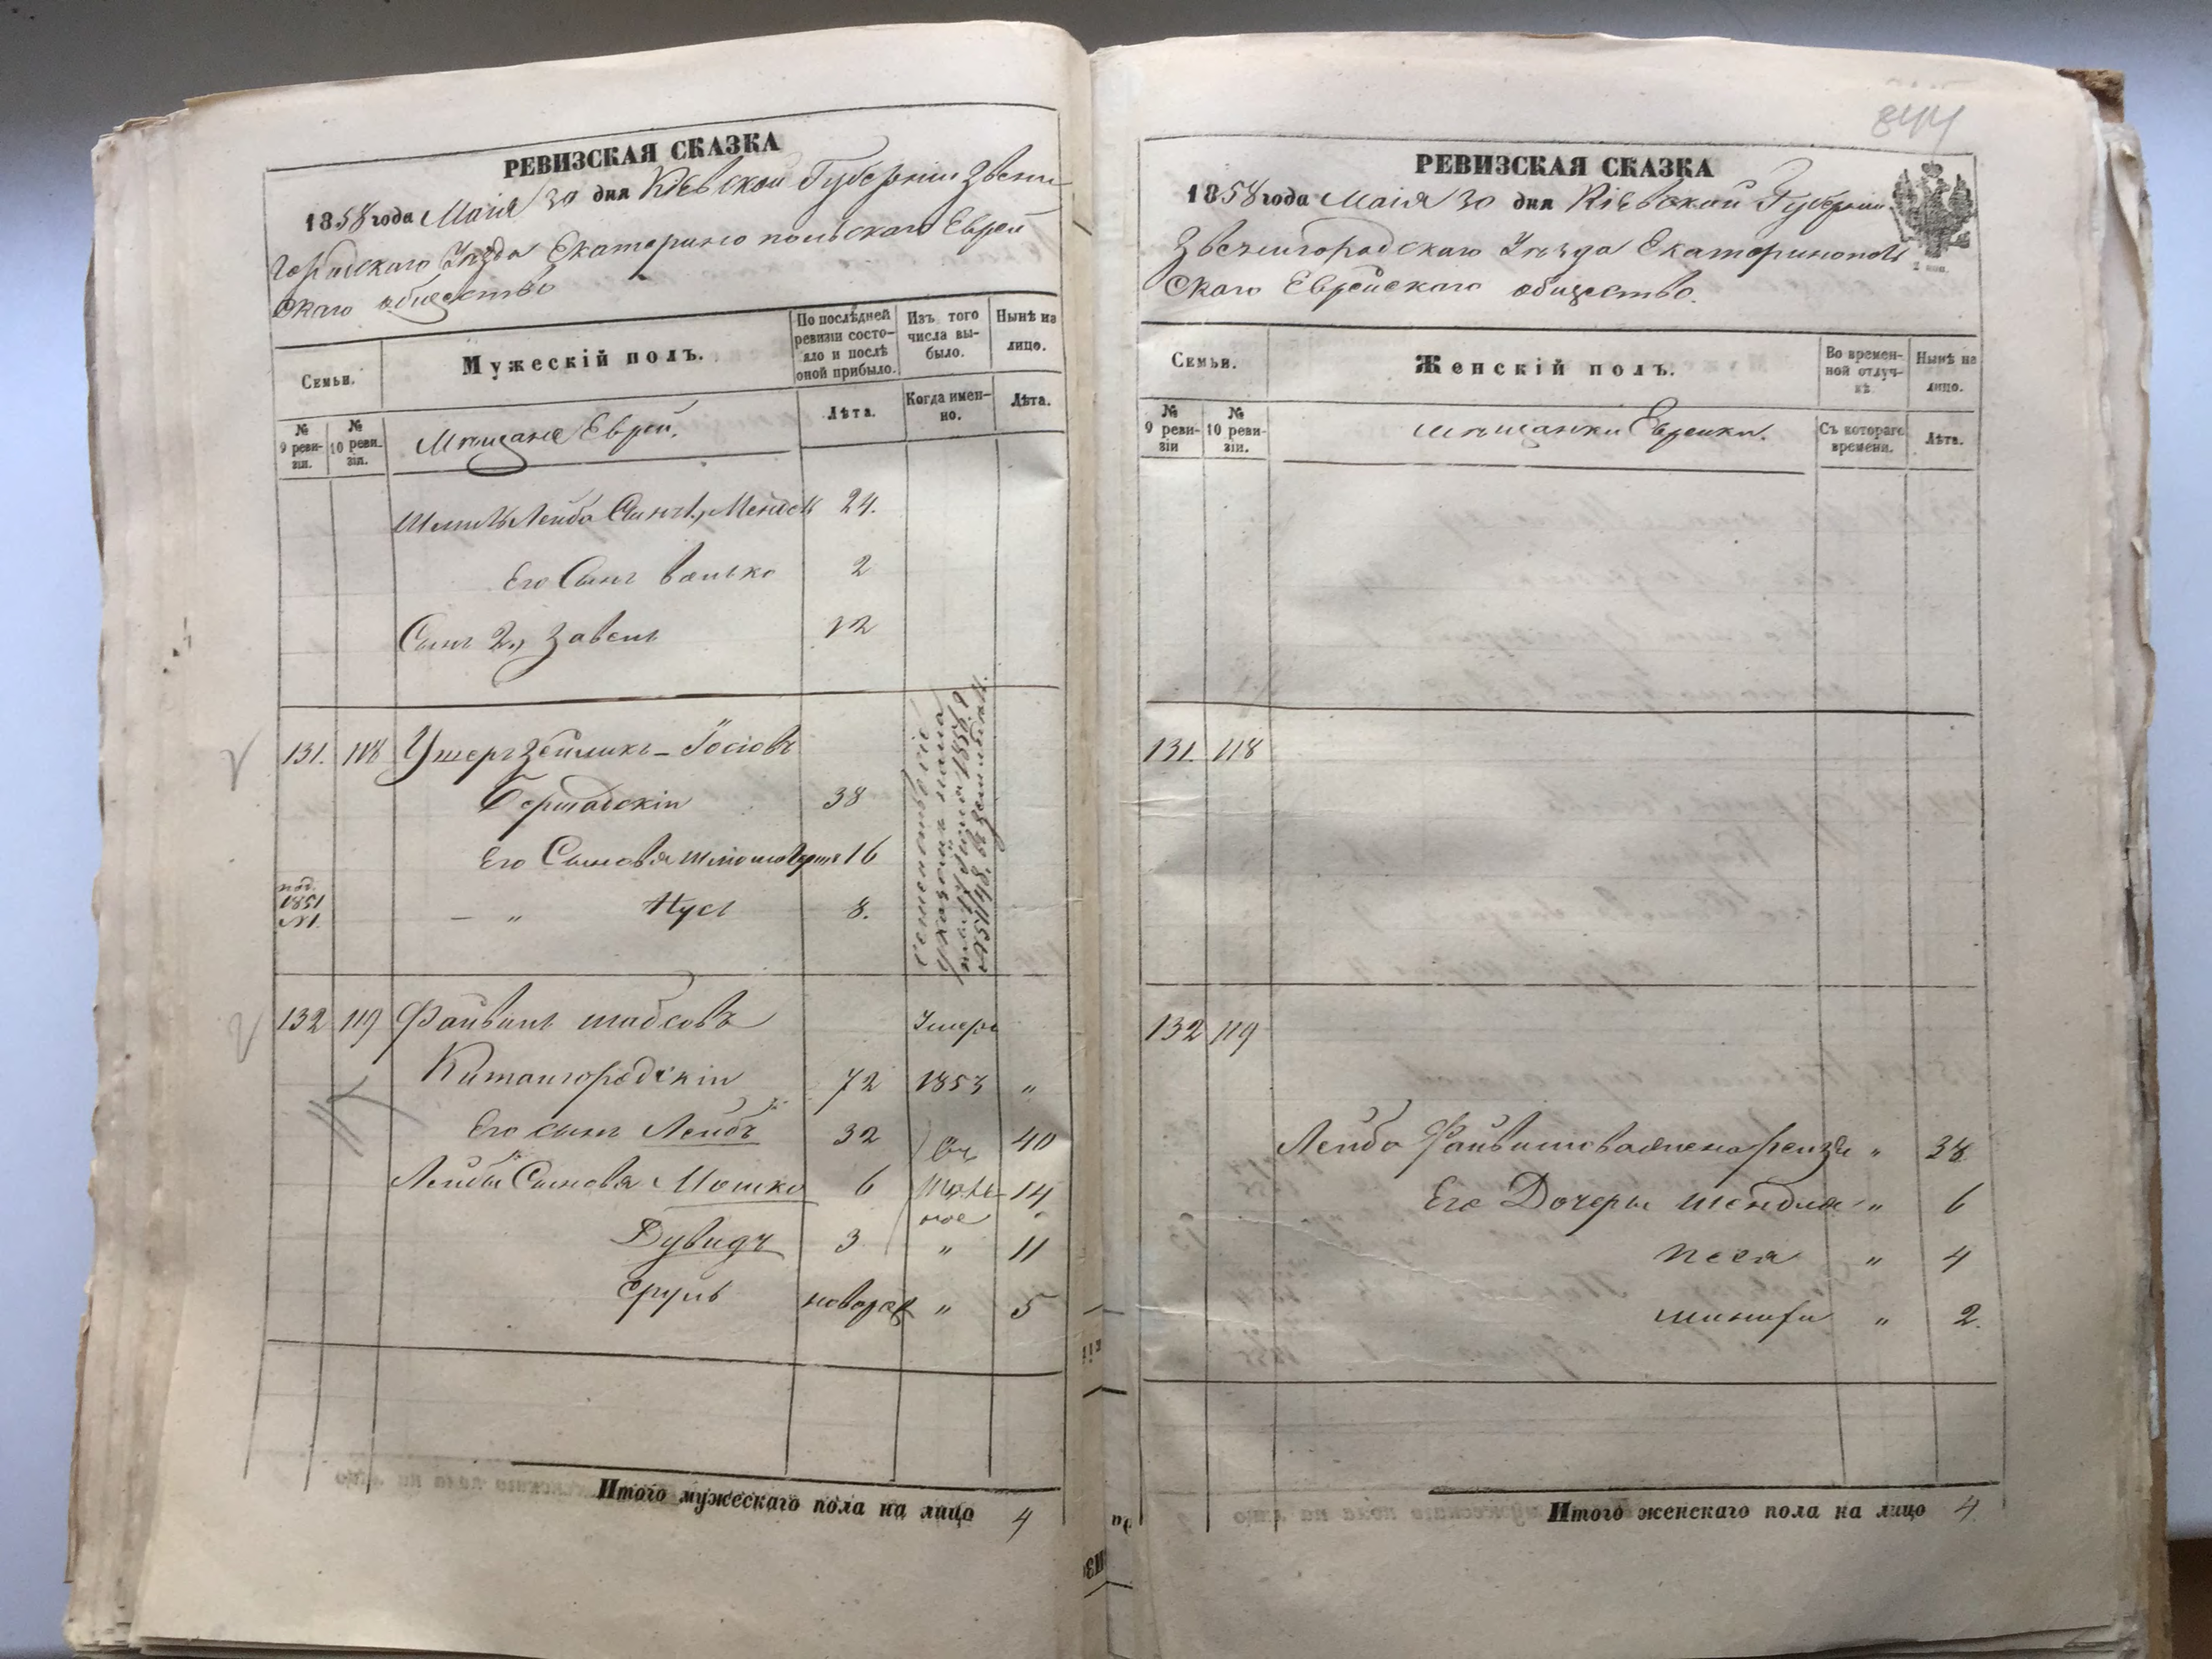 РЕВИЗСКАЯ СКАЗКА
1858 года Маія 30 дня Кіевской Губерніи Звени
городскаго Уѣзда Екатеринопольскаго Еврей
скаго общества
Семьи.
Мужескій полъ.
По послѣдней ревизіи состояло и послѣ оной прибыло.
Изъ того числа выбыло.
Нынѣ на лицо.
№ 9 ревизіи.
№ 10 ревизіи.
Мѣщане Евреи.
Лѣта.
Когда именно.
Лѣта.
Лейба Сынъ 1, Мендель 24.
Его Сынъ Волько 2
Сынъ 2, Завель 12
131. 118 Ушеръ Зейликъ - Іосіовъ
Бершадскій 38
Его Сыновя 16
под. 1851 №1.
— " Нусъ 8.
132 119 Файвишъ Шабсовъ Умеръ
Китайгородскій 72 1853 "
Его сынъ Лейбъ 32 40
Лейбы Сыновя Мошко 6 14
Дувидъ 3 " 11
Сруль новорож " 5
Итого мужескаго пола на лицо 4
844
РЕВИЗСКАЯ СКАЗКА
1858 года Маія 30 дня Кіевской Губерніи
Звенигородскаго Уѣзда Екатеринополь
скаго Еврейскаго общества.
Семьи.
Женскій полъ.
Во временной отлучкѣ.
Нынѣ на лицо.
№ 9 ревизіи
№ 10 ревизіи.
Мѣщанки Еврейки.
Съ котораго времени.
Лѣта.
131 118
132 119
Лейба Файвишова жена Рейзя " 38
Его Дочеры Шендля " 6
Песя " 4
" 2.
Итого женскаго пола на лицо 4